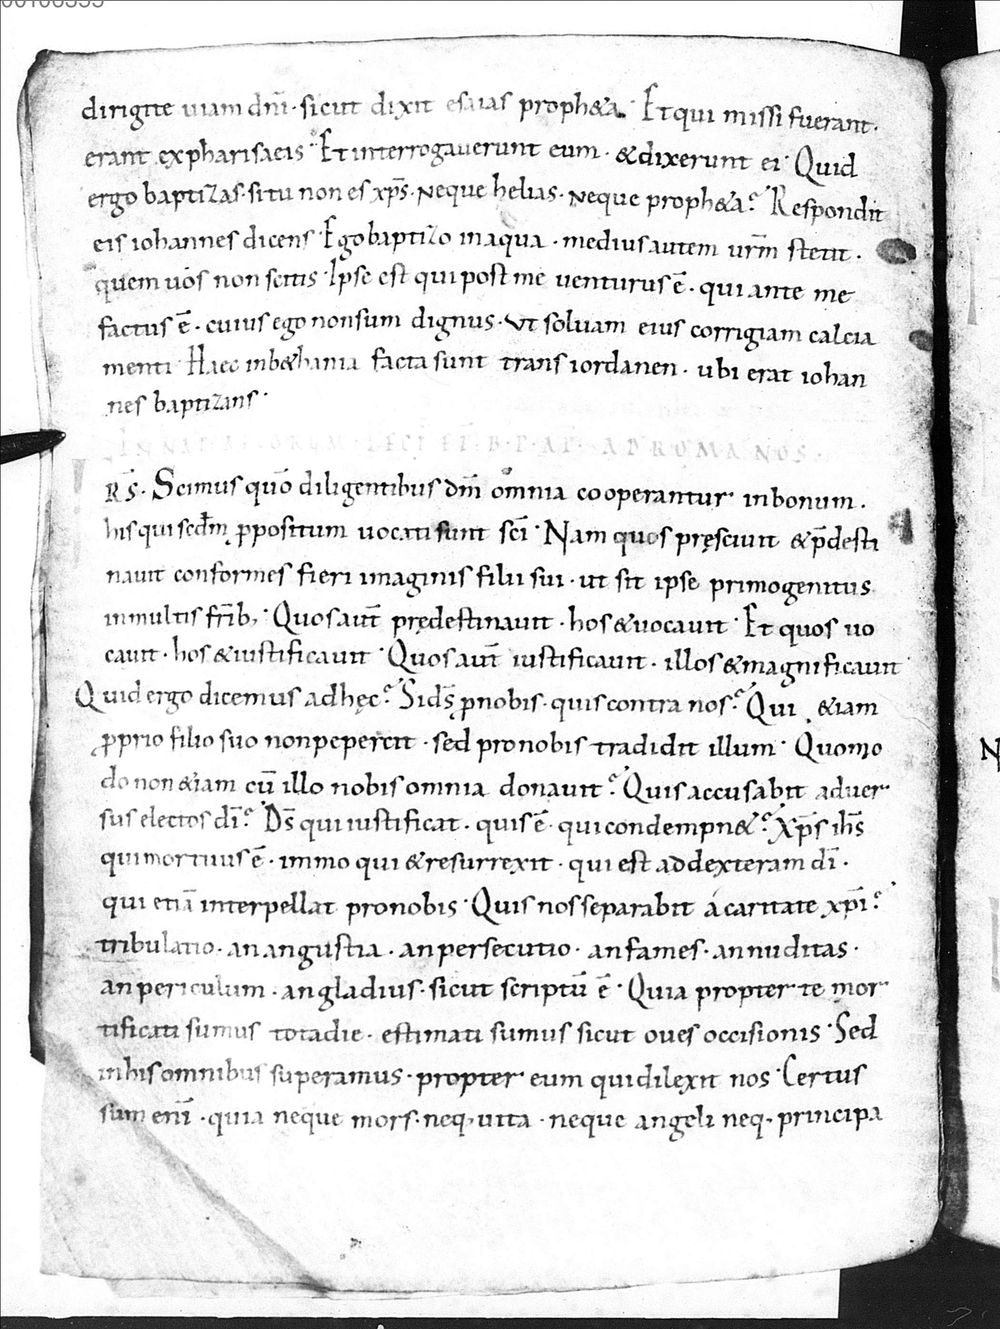 dirigite uiam dn̄i · sicut dixit esaias proph&a. Et qui missi fuerant ·
erant ex pharisaeis · Et interrogauerunt eum · & dixerunt ei · Quid
ergo baptizas · si tu non es xp̄s · neque helias · neque proph&a? Respondit
eis iohannes dicens · Ego baptizo in aqua · medius autem ur̄m stetit ·
quem uos non scitis · Ipse est qui post me uenturus ē · qui ante me
factus ē · cuius ego non sum dignus · ut soluam eius corrigiam calcia
menti · Haec in b&hania facta sunt trans iordanen · ubi erat iohan
nes baptizans ·
LECT EP B PAP AD ROMANOS ·
R̄S · Scimus quō diligentibus dm̄ omnia cooperantur in bonum ·
his qui secdm̄ ꝓpositum uocati sunt sc̄i · Nam quos pręsciuit & p̄desti
nauit conformes fieri imaginis filii sui · ut sit ipse primogenitus
in multis fr̄ib; · Quos aut̄ prędestinauit · hos & uocauit · Et quos uo
cauit · hos & iustificauit · Quos aut̄ iustificauit · illos & magnificauit
Quid ergo dicemus ad hęc? Si ds̄ ꝓ nobis · quis contra nos? Qui &iam
ꝓprio filio suo non pepercit · sed pro nobis tradidit illum · Quomo
do non &iam cū illo nobis omnia donauit? Quis accusabit aduer
sus electos dī? Ds̄ qui iustificat · quis ē · qui condempn&? Xp̄s ih̄s
qui mortuus ē · immo qui & resurrexit · qui est ad dexteram dī ·
qui etiā interpellat pro nobis · Quis nos separabit a caritate xp̄i?
tribulatio · an angustia · an persecutio · an fames · an nuditas ·
an periculum · an gladius · sicut scriptū ē · Quia propter te mor
tificati sumus tota die · estimati sumus sicut oues occisionis · Sed
in his omnibus superamus · propter eum qui dilexit nos · Certus
sum enī · quia neque mors · neq; uita · neque angeli neq; principa